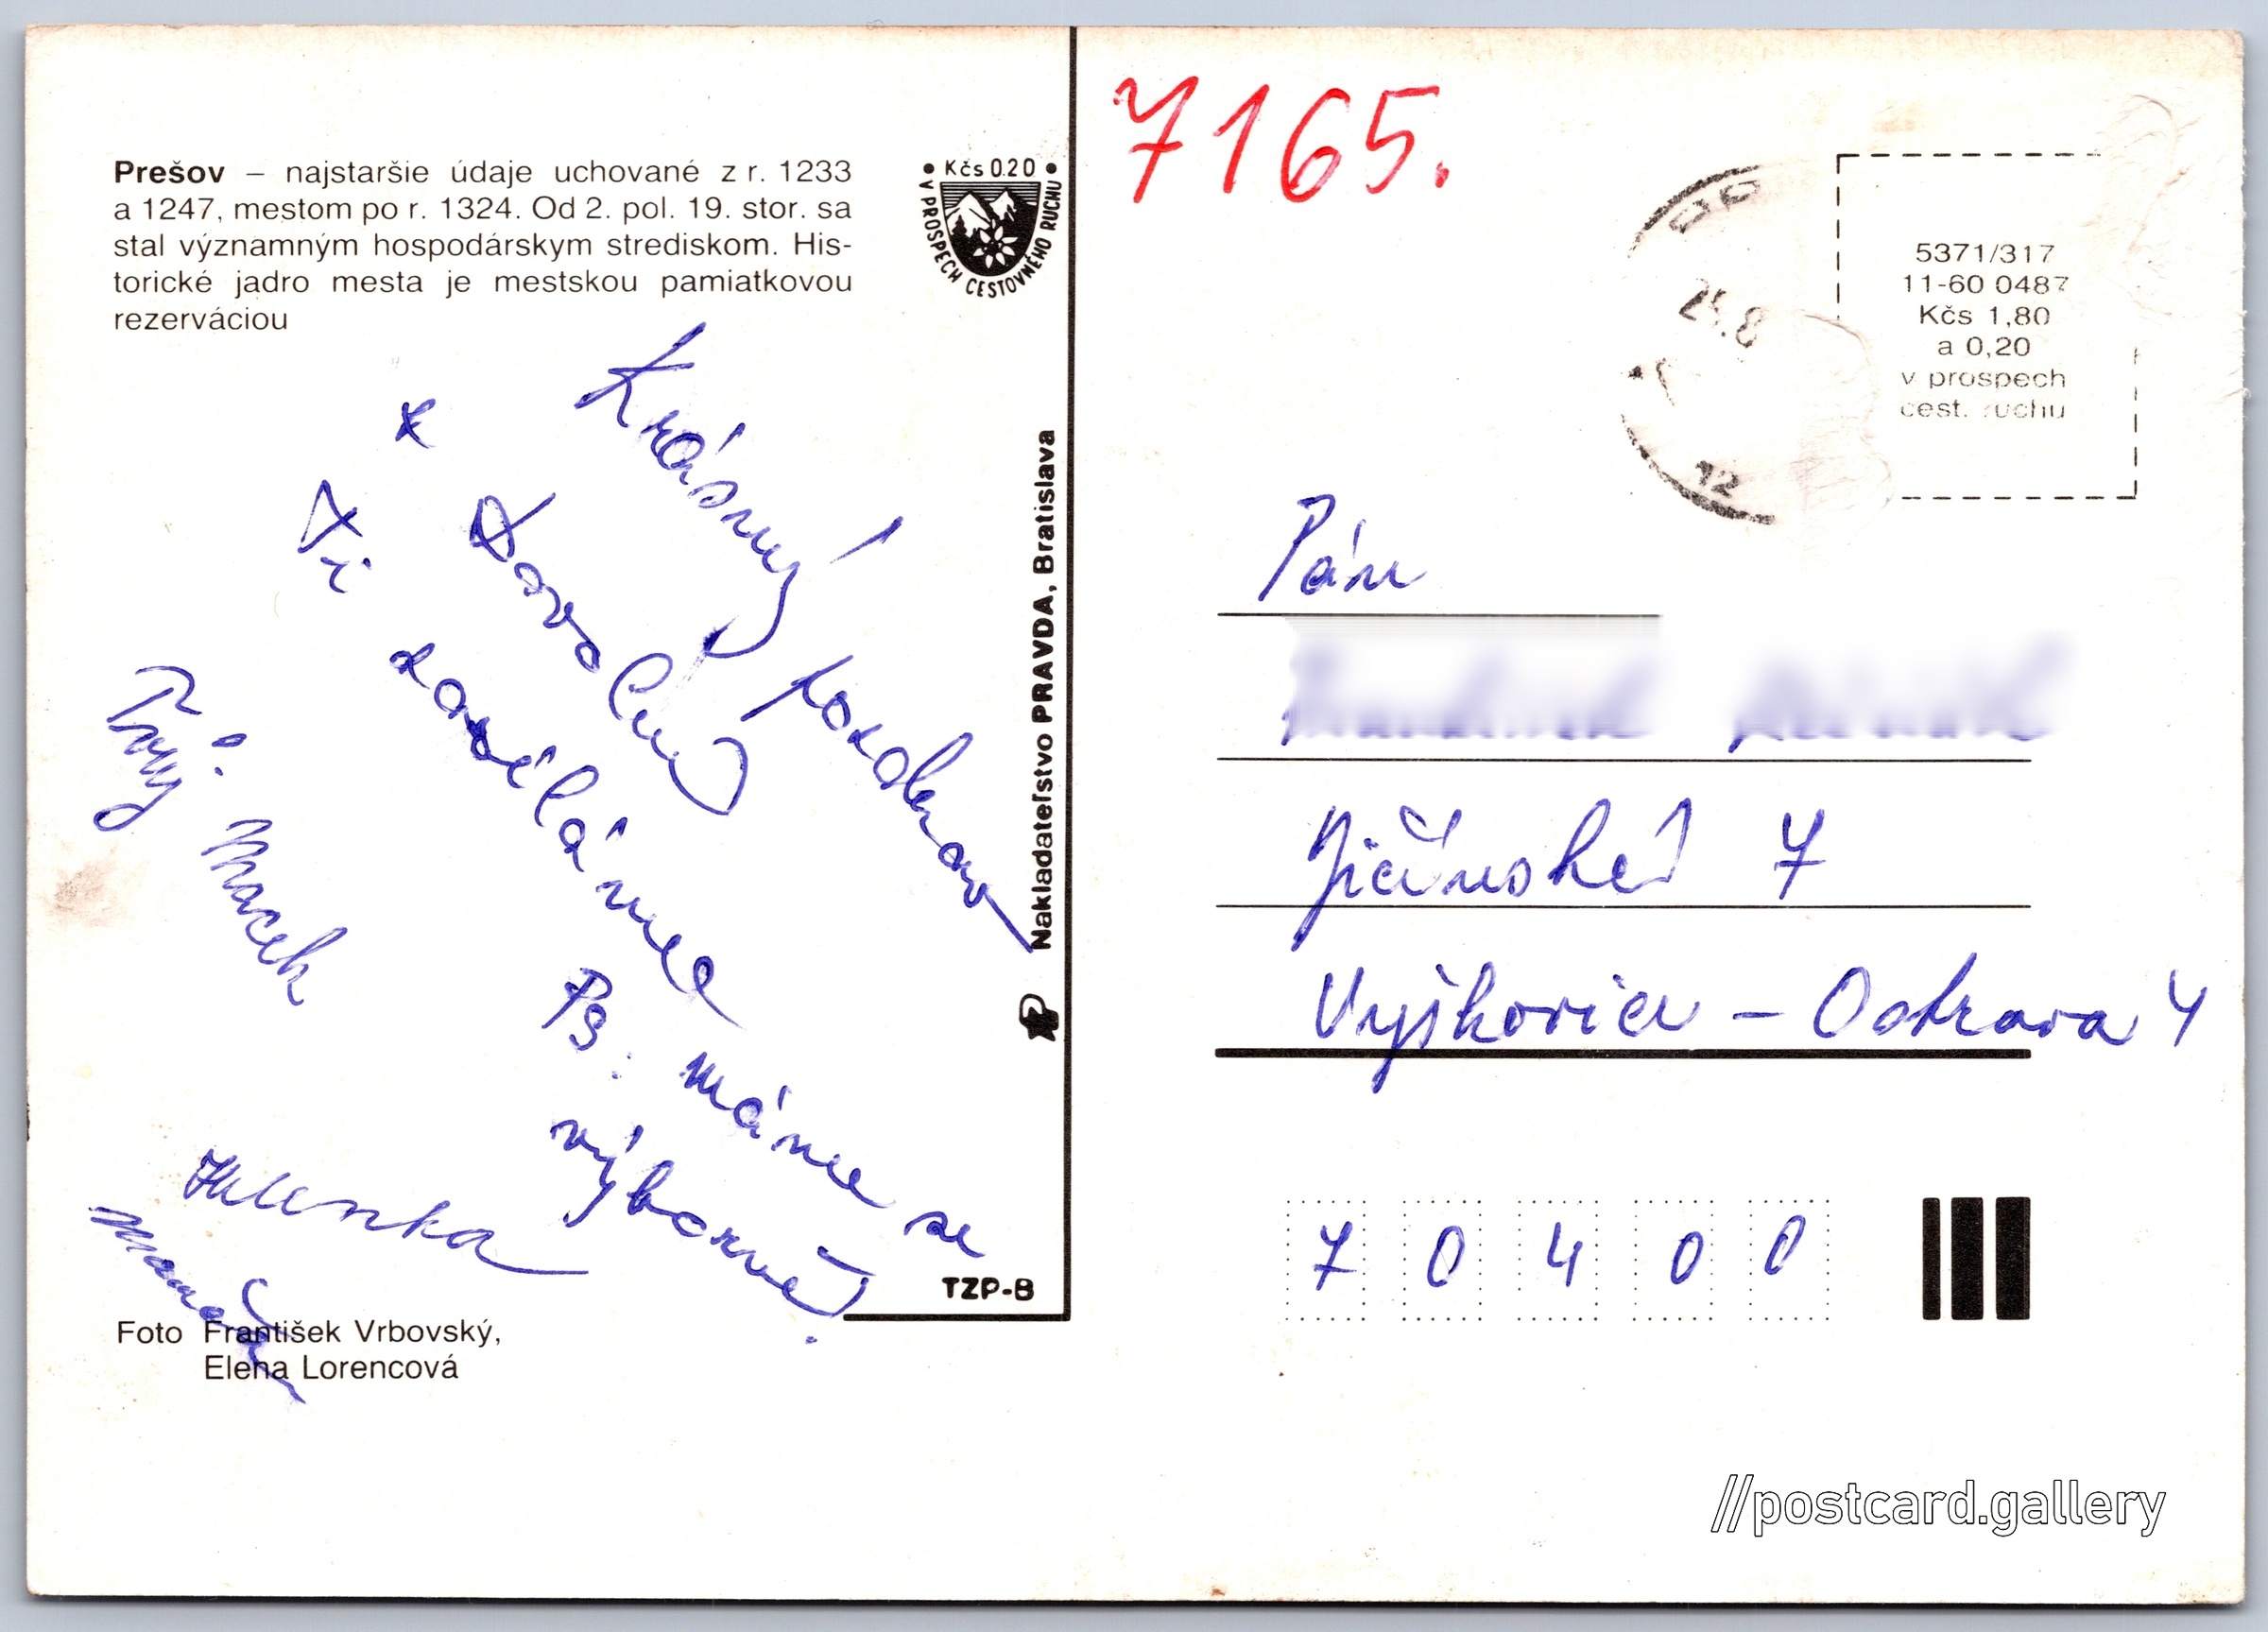 Prešov – najstaršie údaje uchované z r. 1233
a 1247, mestom po r. 1324. Od 2. pol. 19. stor. sa
stal významným hospodárskym strediskom. His-
torické jadro mesta je mestskou pamiatkovou
rezerváciou
• Kčs 0.20 •
V PROSPECH CESTOVNÉHO RUCHU
Krásný pozdrav
z Dovolený
Ti zasíláme
Tvůj: Macek
Ps: máme se
výborně!
Helenka
Foto František Vrbovský,
Elena Lorencová
Nakladateľstvo PRAVDA, Bratislava
TZP-8
7165.
24.8
12
5371/317
11-60 0487
Kčs 1,80
a 0,20
v prospech
cest. ruchu
Pán
Jičínská 7
Vyškovice – Ostrava 4
7 0 4 0 0
//postcard.gallery